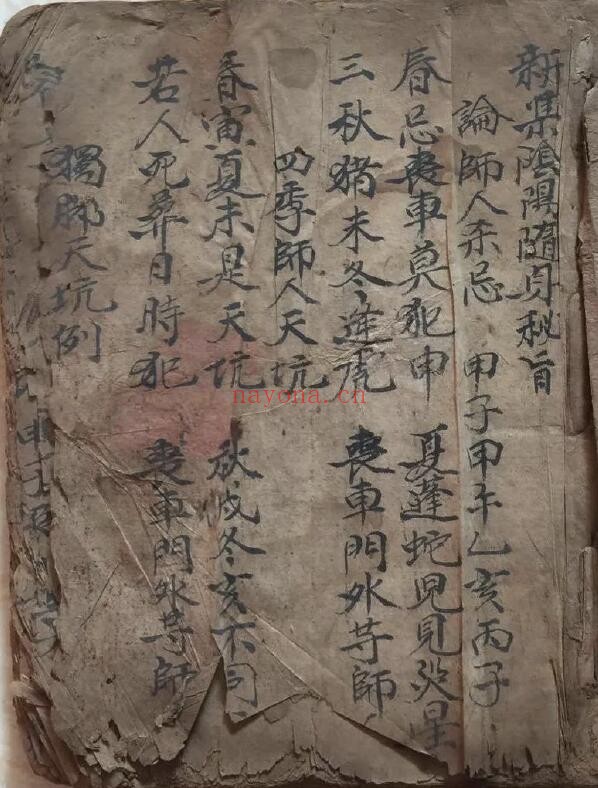 新集陰陽隨身秘旨
論師人杀忌 甲子甲午乙亥丙子
春忌喪車莫犯申 夏蓬蛇児見災星
三秋猪未冬逢虎 喪車門外等師
四季師人天坑
春寅夏未是天坑 秋戌冬亥不同
若人死葬日時犯 喪車門外等師
獨脚天坑例
nayona.cn